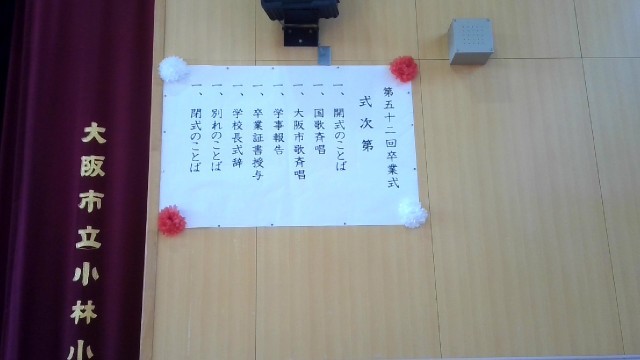 第五十二回卒業式
式次第
一、開式のことば
一、国歌斉唱
一、大阪市歌斉唱
一、学事報告
一、卒業証書授与
一、学校長式辞
一、別れのことば
一、閉式のことば
大阪市立小林小